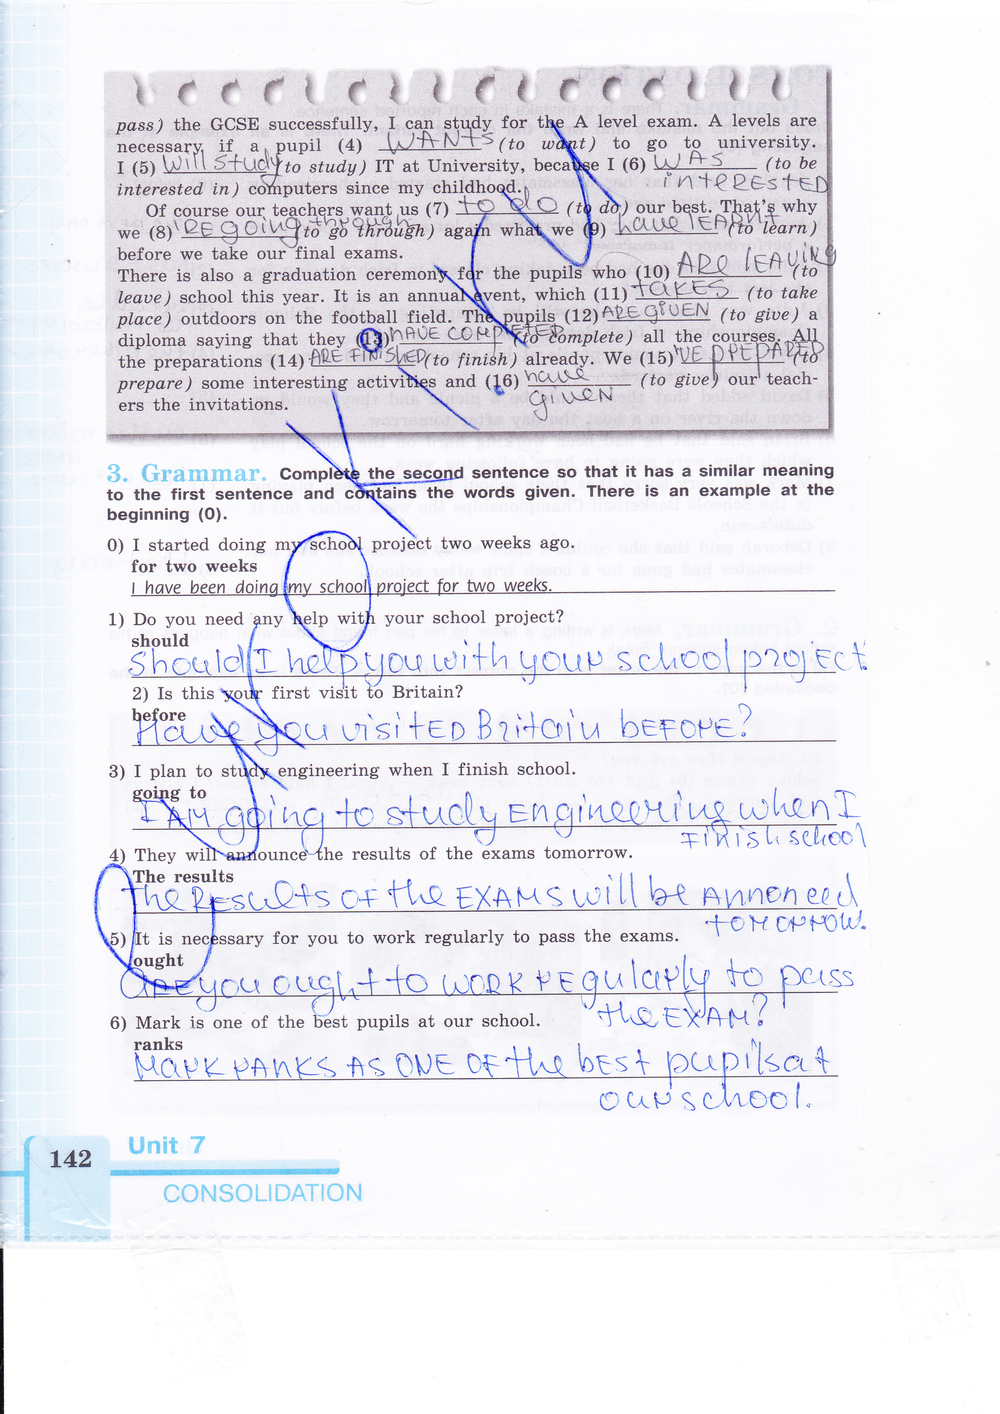 pass) the GCSE successfully, I can study for the A level exam. A levels are
necessary if a pupil (4) WANTS (to want) to go to university.
I (5) will study (to study) IT at University, because I (6) WAS (to be
interested in) computers since my childhood. INTERESTED
Of course our teachers want us (7) to do (to do) our best. That's why
we (8) 'RE going through (to go through) again what we (9) have LEARNT (to learn)
before we take our final exams.
There is also a graduation ceremony for the pupils who (10) ARE LEAVING (to
leave) school this year. It is an annual event, which (11) TAKES (to take
place) outdoors on the football field. The pupils (12) ARE GIVEN (to give) a
diploma saying that they (13) HAVE COMPLETED (to complete) all the courses. All
the preparations (14) ARE FINISHED (to finish) already. We (15) 'VE PREPARED (to
prepare) some interesting activities and (16) have (to give) our teach-
ers the invitations. given
3. Grammar. Complete the second sentence so that it has a similar meaning
to the first sentence and contains the words given. There is an example at the
beginning (0).
0) I started doing my school project two weeks ago.
for two weeks
I have been doing my school project for two weeks.
1) Do you need any help with your school project?
should
Should I help you with your school project
2) Is this your first visit to Britain?
before
Have you visited Britain before?
3) I plan to study engineering when I finish school.
going to
I AM going to study Engineering when I
finish school
4) They will announce the results of the exams tomorrow.
The results
The Results of the EXAMS will be Annonced
tomorrow.
5) It is necessary for you to work regularly to pass the exams.
ought
ARE you ought to work regularly to pass
the EXAM?
6) Mark is one of the best pupils at our school.
ranks
Mark ranks AS ONE OF the best pupils at
our school.
142
Unit 7
CONSOLIDATION